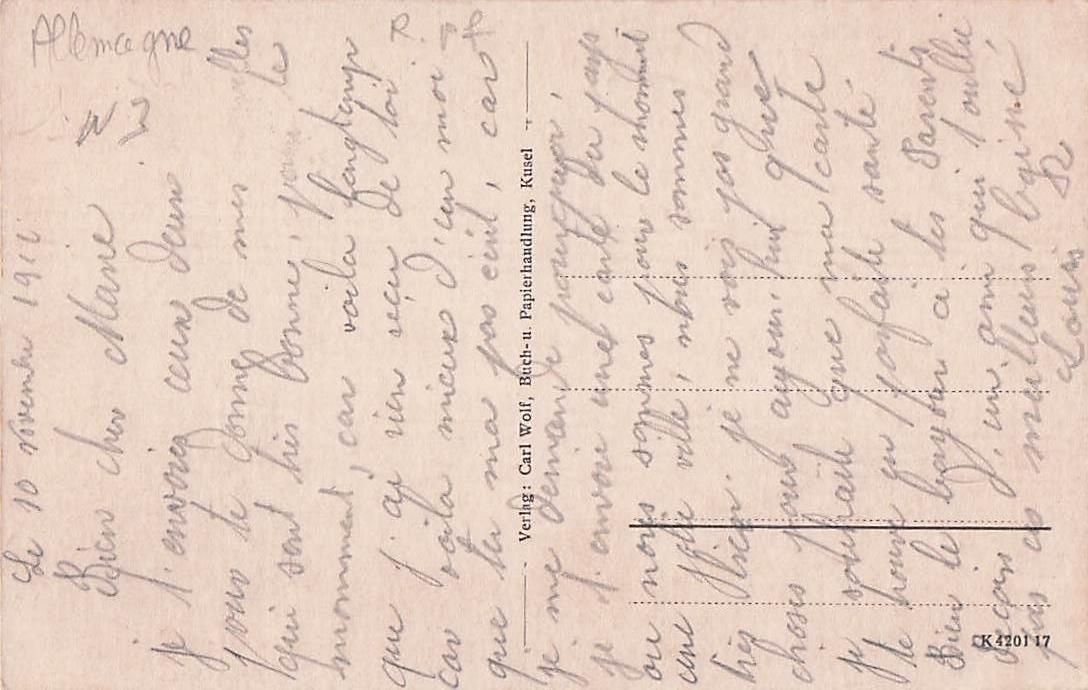 Allemagne
N 3
Le 10 novembre 191
Bien cher Marie
je t'envoie ceux deux
pour te donné de mes
qui sont très bonne, pour le
momment, car voila longtemps
que j'ai rien reçu de toi R.
car voila mieux d'un moi
que tu ma pas écrit, car
je me demande pourquoi,
je t'envoie une carte du pays
ou nous sommes pour le moment
une ville, nous sommes
très bien. je ne vois pas grand
choses pour aujourd'hui que
je souhaite que ma carte
te trouve en parfaite santé
Bien le bonjour a les Parents
Reçois d'un ami qui t'oublie
pas ces meilleurs
Louis R
Verlag: Carl Wolf, Buch- u. Papierhandlung, Kusel
K 4201 17